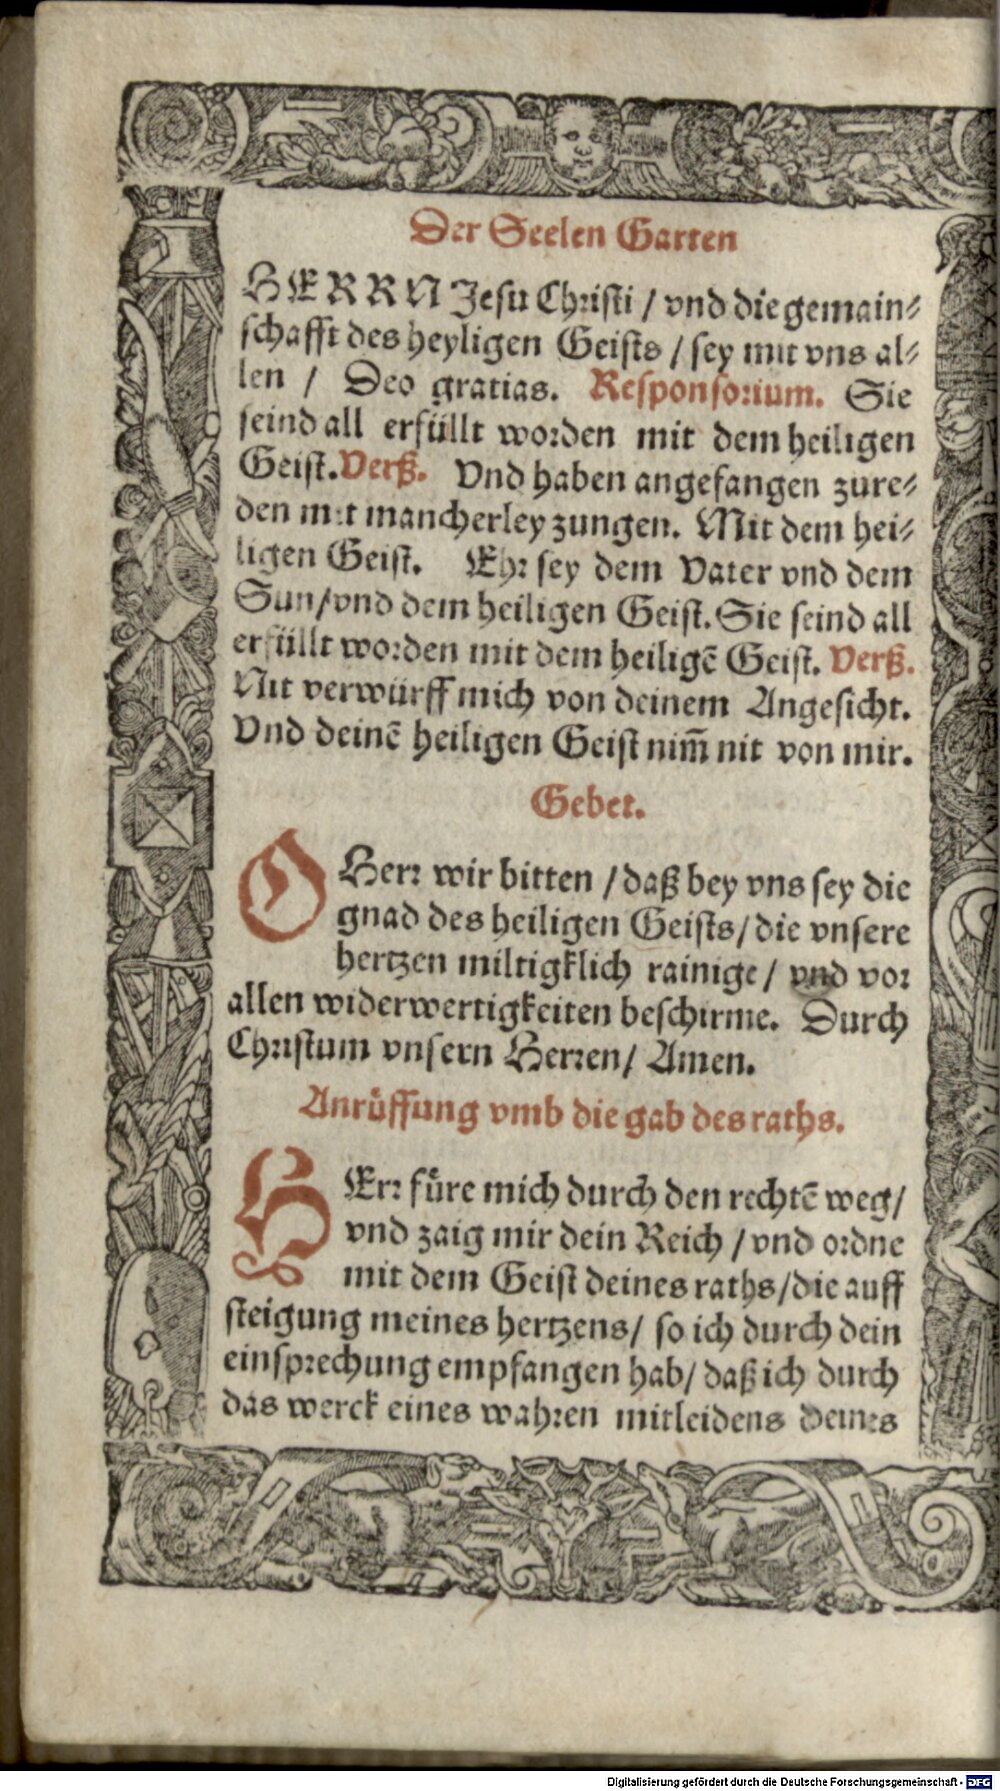 Der Seelen Garten
HERRN Jesu Christi / vnd die gemain⸗
schafft des heyligen Geists / sey mit vns al⸗
len / Deo gratias. Responsorium. Sie
seind all erfüllt worden mit dem heiligen
Geist. Verß. Vnd haben angefangen zure⸗
den mit mancherley zungen. Mit dem hei⸗
ligen Geist. Ehr sey dem Vater vnd dem
Sun/vnd dem heiligen Geist. Sie seind all
erfüllt worden mit dem heiligē Geist. Verß.
Nit verwürff mich von deinem Angesicht.
Vnd deinē heiligen Geist nim̃ nit von mir.
Gebet.
O Herr wir bitten / daß bey vns sey die
gnad des heiligen Geists/die vnsere
hertzen miltigklich rainige / vnd vor
allen widerwertigkeiten beschirme. Durch
Christum vnsern Herren/ Amen.
Anrůffung vmb die gab des raths.
HErr fůre mich durch den rechtē weg/
vnd zaig mir dein Reich / vnd ordne
mit dem Geist deines raths/die auff
steigung meines hertzens/ so ich durch dein
einsprechung empfangen hab/ daß ich durch
das werck eines wahren mitleidens deines
Digitalisierung gefördert durch die Deutsche Forschungsgemeinschaft - DFG